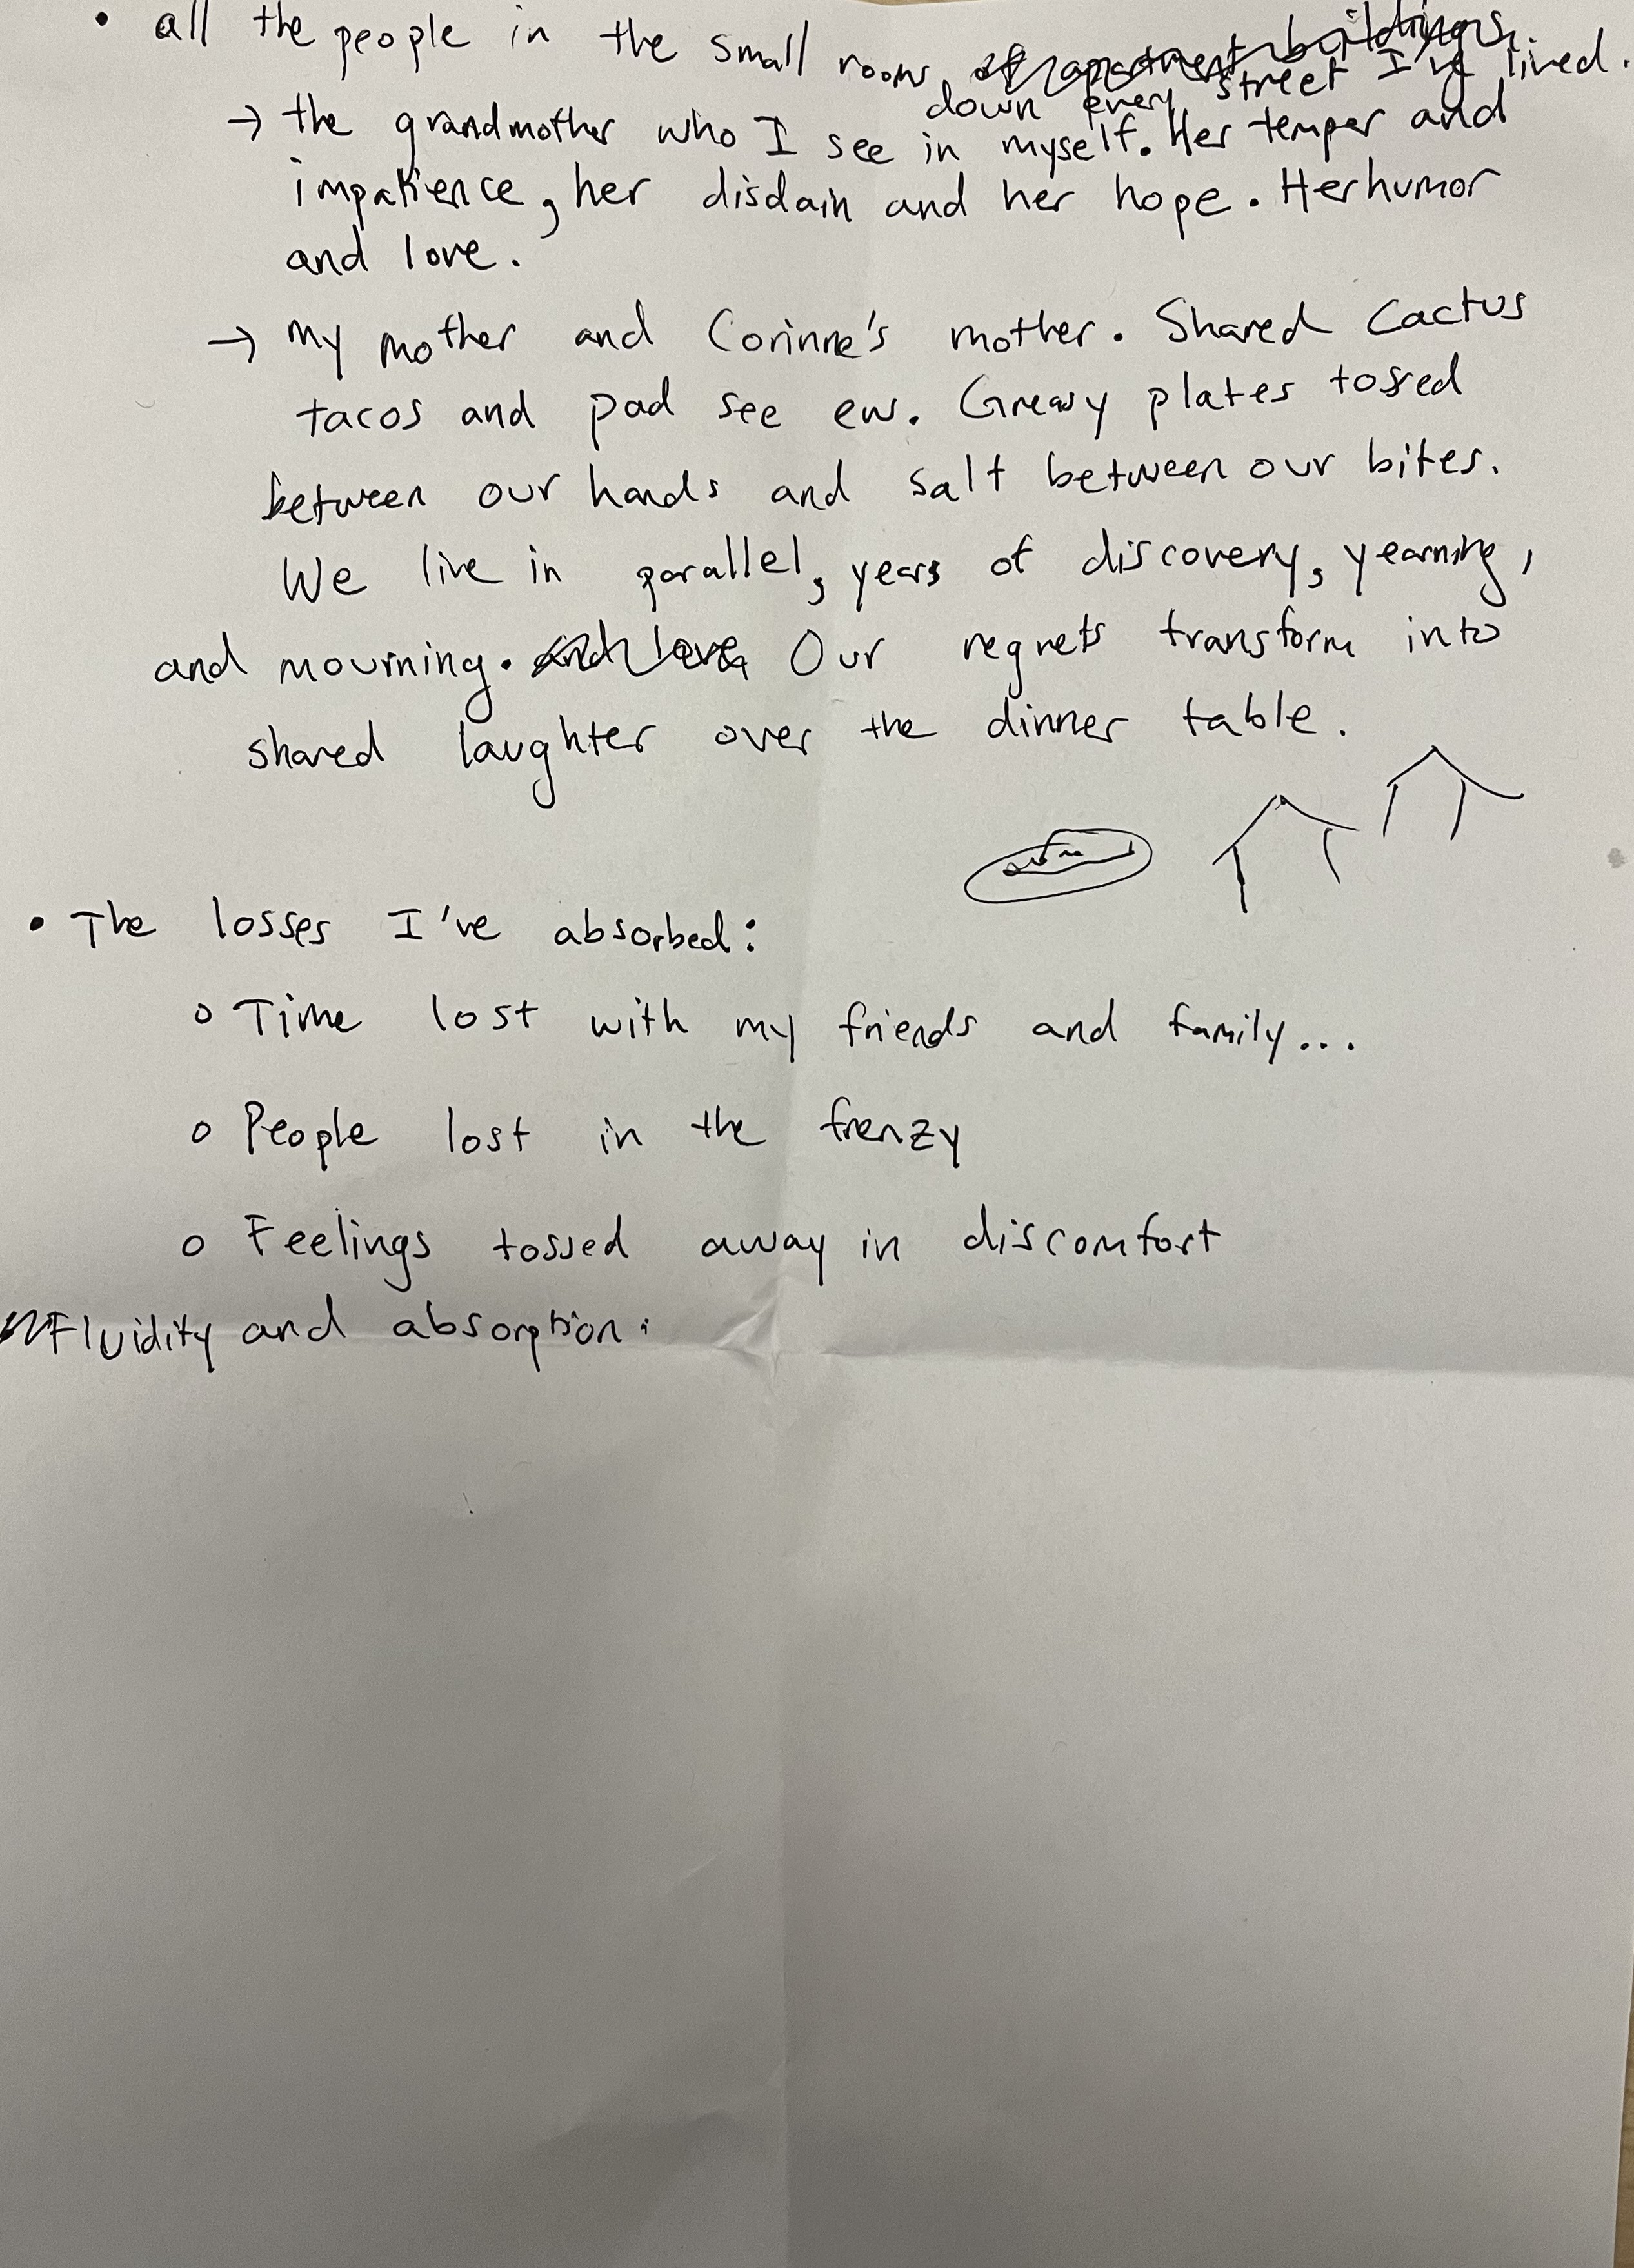 • all the people in the small rooms, of apartment buildings,
down every street I've lived.
→ the grandmother who I see in myself. Her temper and
impatience, her disdain and her hope. Her humor
and love.
→ My mother and Corinne's mother. Shared Cactus
tacos and pad see ew. Greasy plates tossed
between our hands and salt between our bites.
We live in parallel, years of discovery, yearning,
and mourning. and love Our regrets transform into
shared laughter over the dinner table.
• The losses I've absorbed:
o Time lost with my friends and family...
o People lost in the frenzy
o Feelings tossed away in discomfort
Fluidity and absorption: